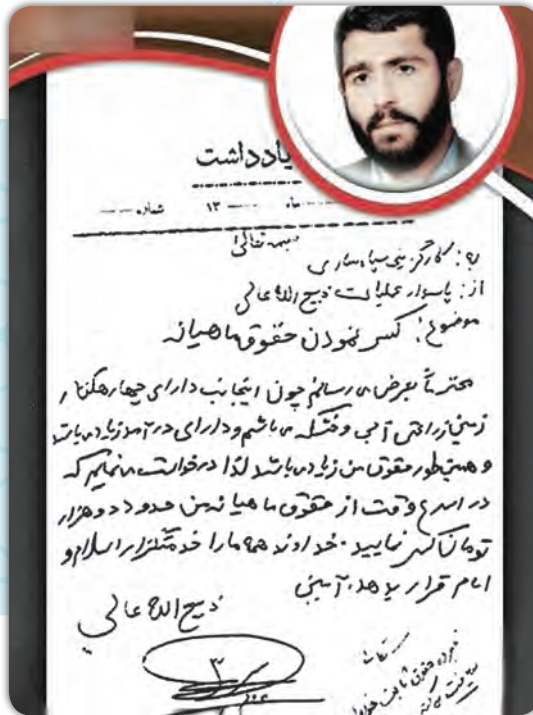 یادداشت
ماه ۱۳ شماره
بسمه تعالی
به: کارگزینی سپاه ساری
از: پاسدار عملیات ذبیح الله عالی
موضوع: کسر نمودن حقوق ماهیانه
محترماً بعرض می رسانم چون اینجانب دارای چهار هکتار
زمین زراعتی آبی و خشکه می باشم و دارای درآمد زیاد می باشد
و همینطور حقوق من زیاد می باشد لذا درخواست می نمایم که
در اسرع وقت از حقوق ماهیانه من حدود دو هزار
تومان کسر نمایید. خداوند همه ما را خدمتگزار اسلام و
امام قرار بدهد. آمین
ذبیح الله عالی
۳